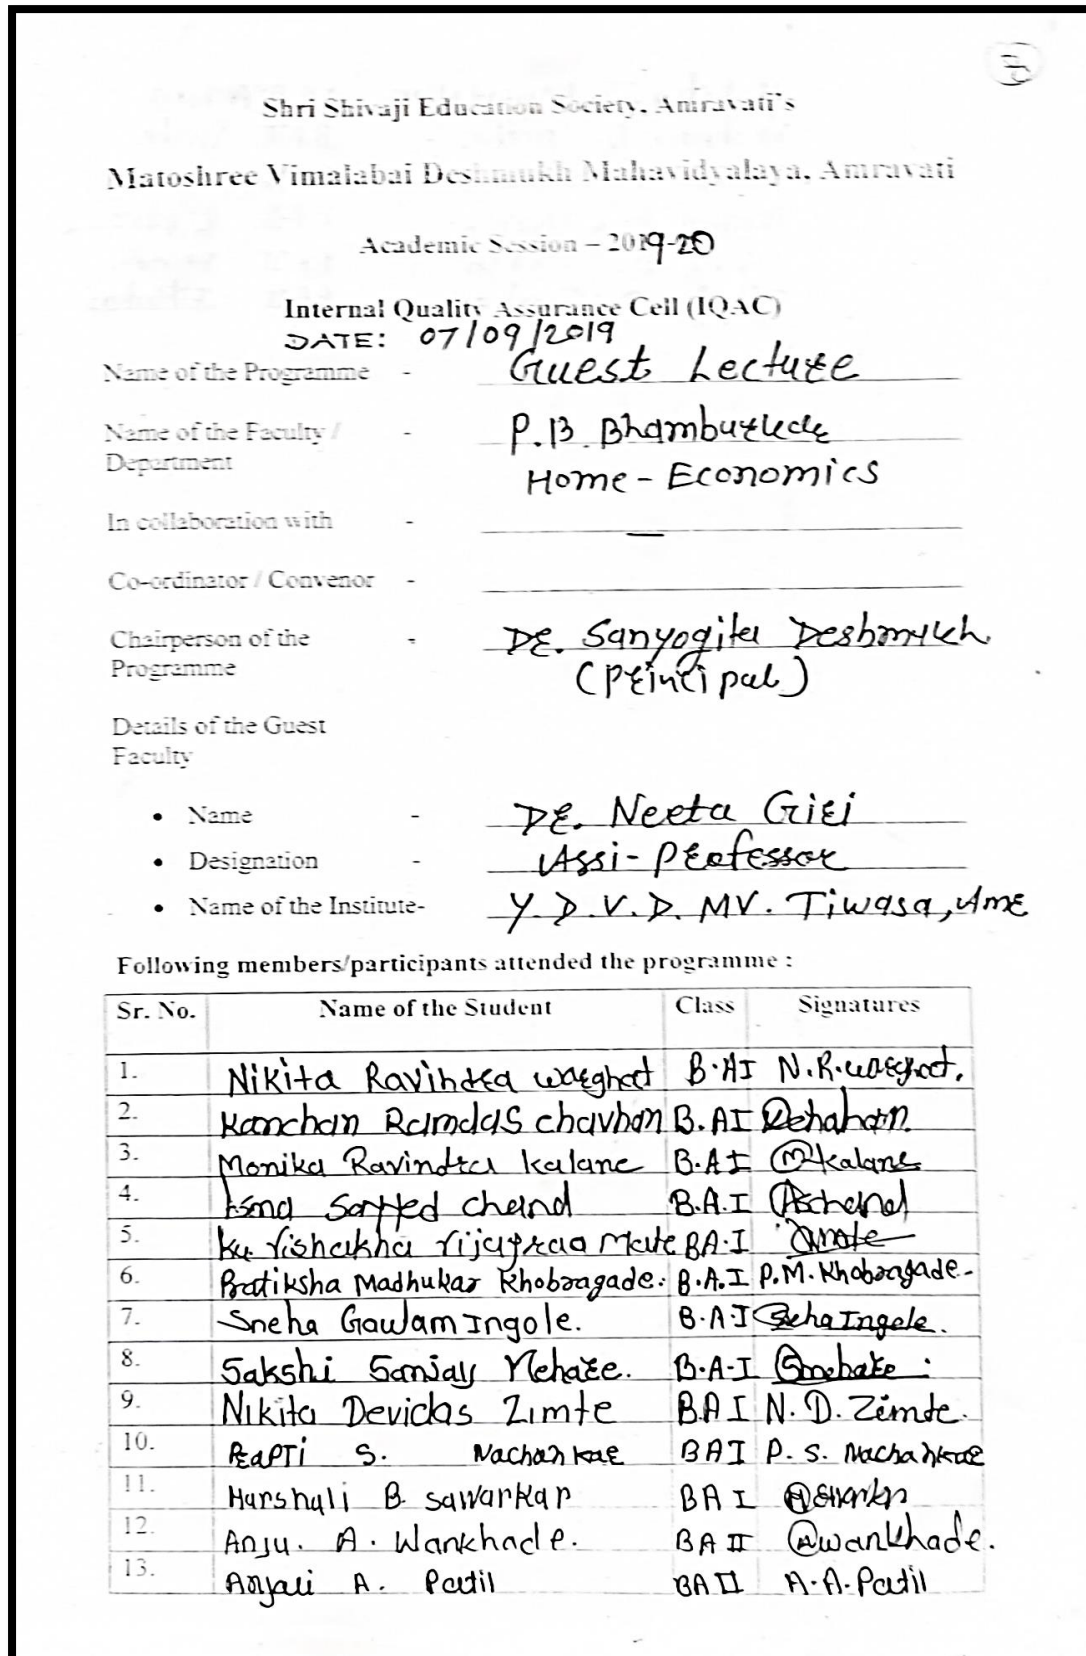 Shri Shivaji Education Society, Amravati's
Matoshree Vimalabai Deshmukh Mahavidyalaya, Amravati
Academic Session – 2019-20
Internal Quality Assurance Cell (IQAC)
DATE: 07/09/2019
Name of the Programme - Guest Lecture
Name of the Faculty / Department - P.B. Bhamburkar
Home-Economics
In collaboration with - —
Co-ordinator / Convenor -
Chairperson of the Programme - Dr. Sanyogita Deshmukh
(Principal)
Details of the Guest
Faculty
• Name - Dr. Neeta Giri
• Designation - Assi-Professor
• Name of the Institute- Y.D.V.D. MV. Tiwasa, Amr
Following members/participants attended the programme :
Sr. No. Name of the Student Class Signatures
1. Nikita Ravindra Warghat B.AI N.R.Warghat.
2. Kanchan Ramdas Chavhan B.AI
3. Monika Ravindra Kalane B.AI Mkalane
4. Chand B.A.I Aschand
5. Ku. Vishakha Vijayrao Mate BA.I
6. Pratiksha Madhukar Khobragade. B.A.I P.M.Khobragade.
7. Sneha Gautam Ingole. B.A.I Ingole.
8. Sakshi Sanjay Mehare. B.A-I Smehare.
9. Nikita Devidas Zimte B.A I N.D.Zimte.
10. S. Nachankar BAI P.S. Nachankar
11. Harshali B. Sawarkar BA I
12. Anju. A. Wankhade. BA II Awankhade.
13. Anjali A. Patil BA II A.A.Patil